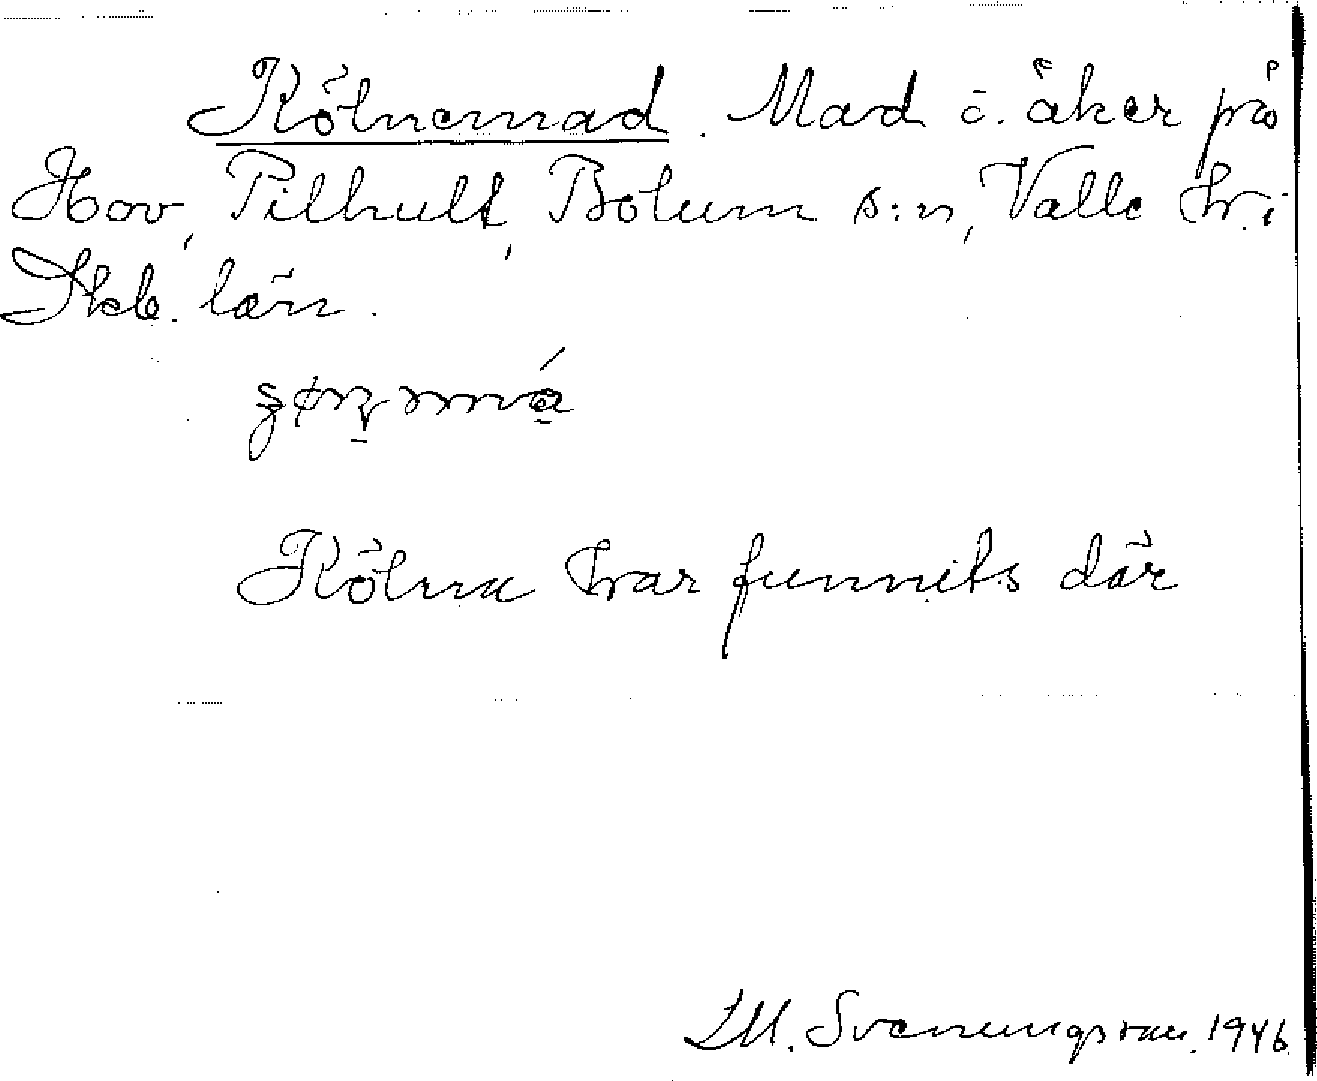 Kölnemad. Mad o. åker på
Hov, Pilhult, Bolum s:n, Valle hr. i
Skb. län.
Kölna har funnits där
M. Svenungsson. 1946